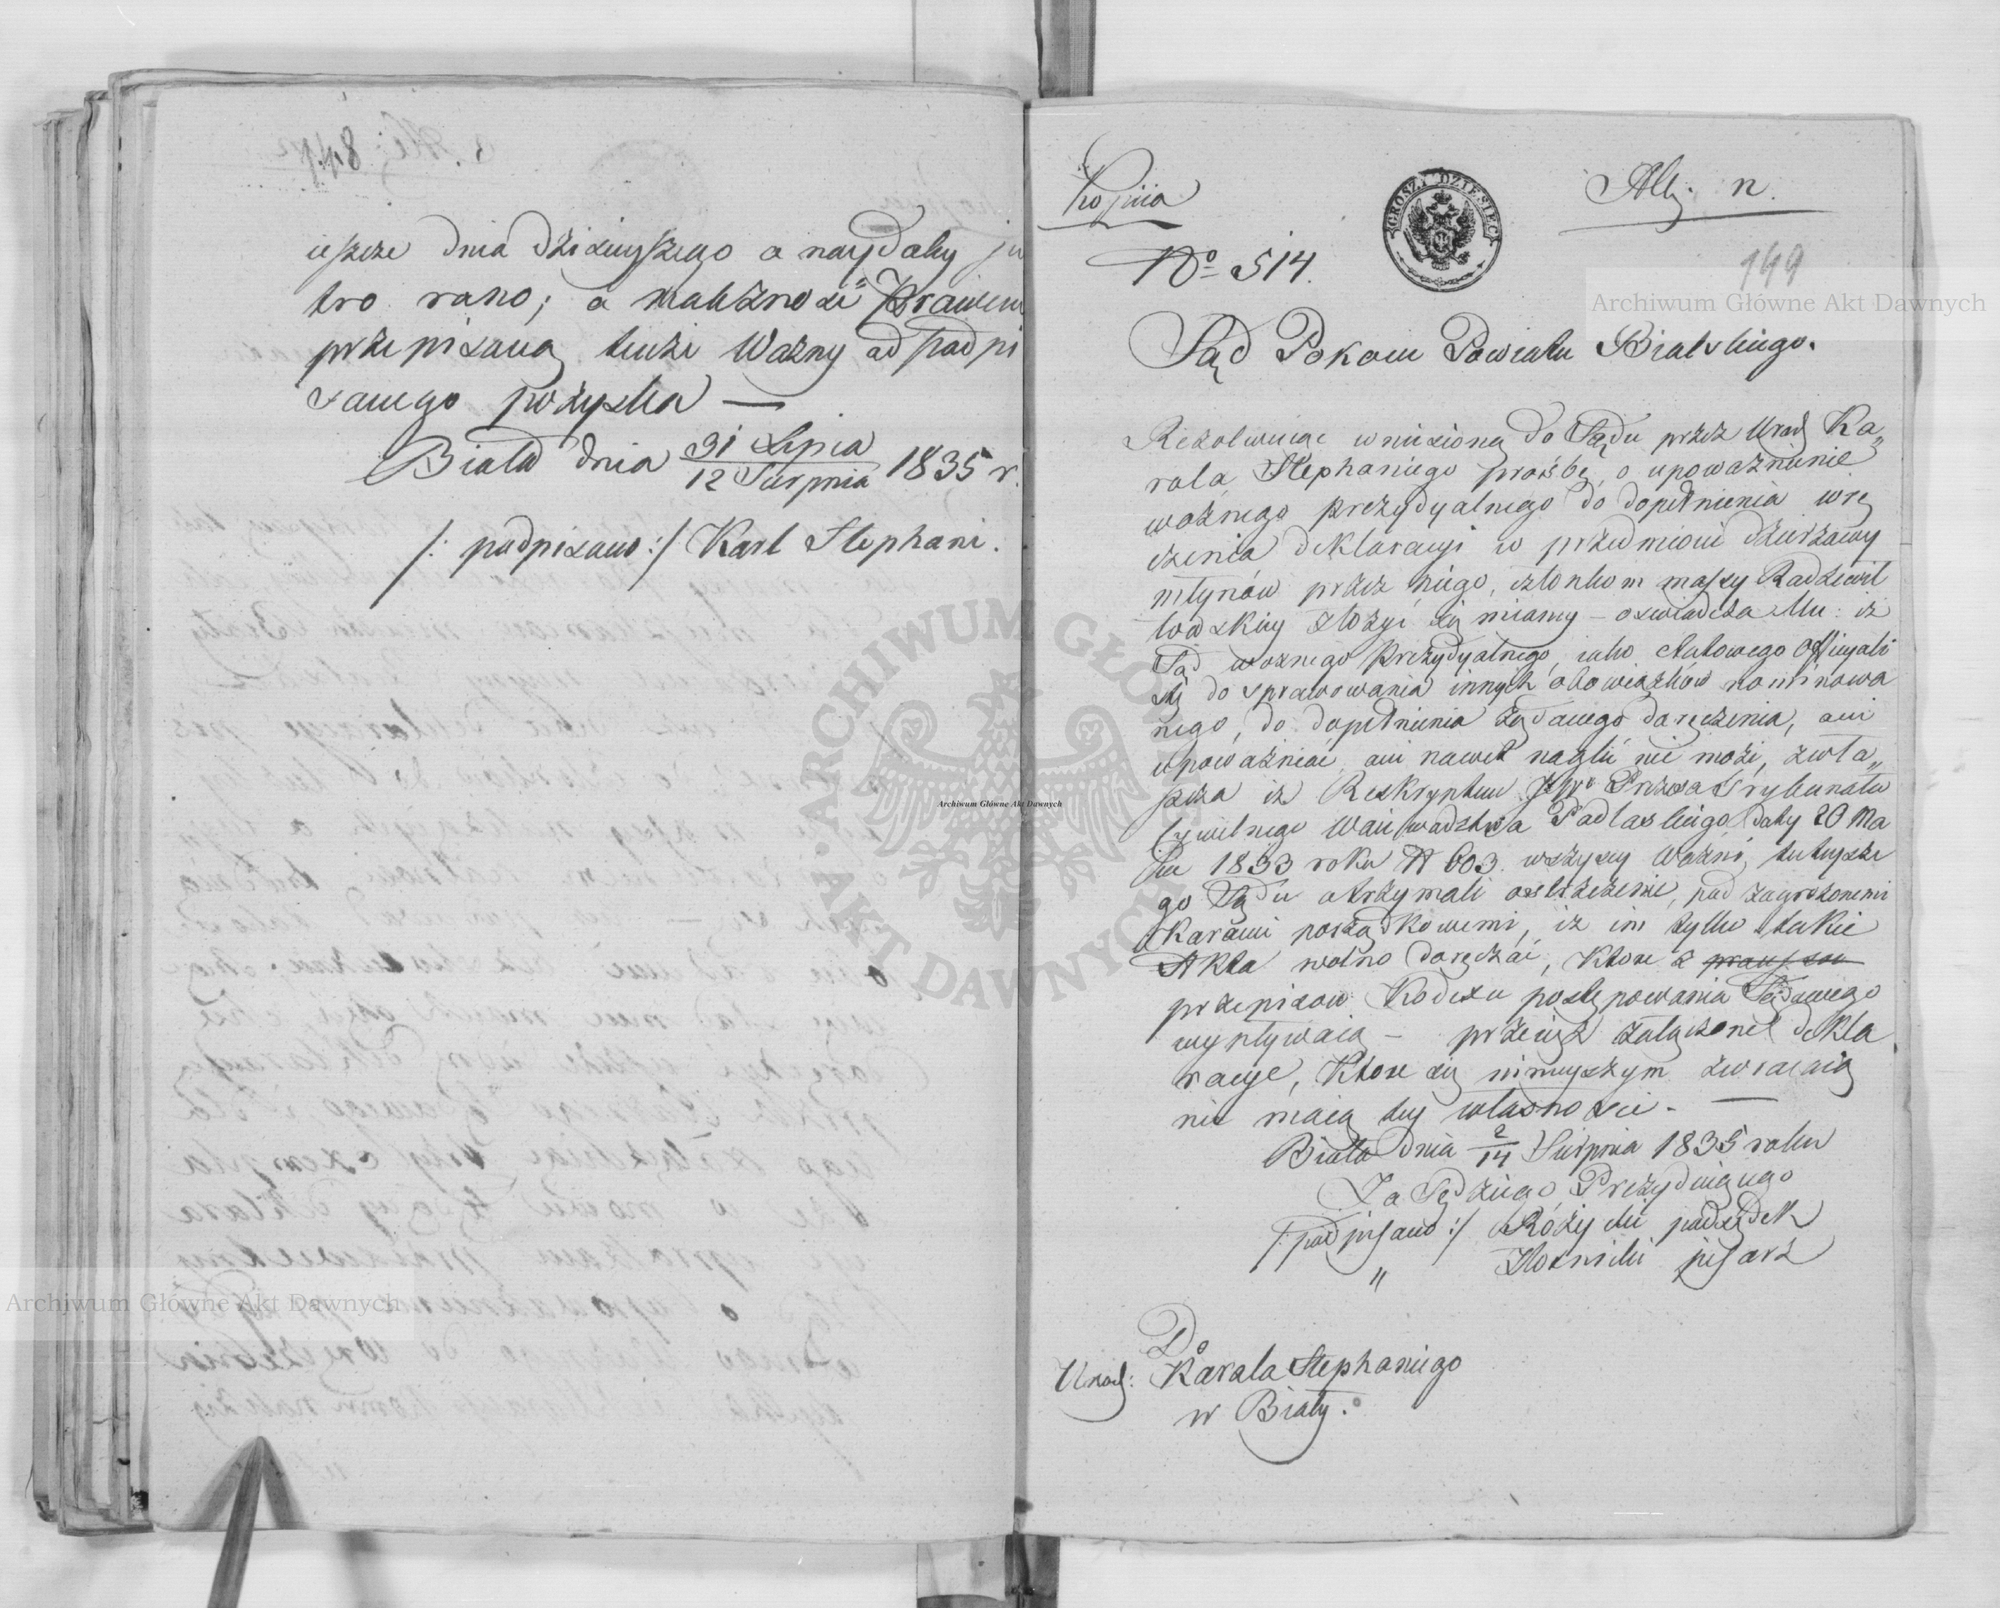 ieszcze dnia dzisieyszego a naydaley ju
tro rano; a należność Prawem
przepisaną tenże Wozny od podpi
sanego pozyska —
Biała dnia 31 Lipca / 12 Sierpnia 1835 r.
/: podpisano :/ Karl Stephani.
Kopiia
Alleg. n.
GROSZY DZIESIĘĆ
No 514.
149
Sąd Pokoiu Powiatu Bialskiego.
Rezolwuiąc wniesioną do Sądu przez Urod. Ka„
rola Stephaniego prośbę, o upoważnienie
woźnego prezydyalnego do dopełnienia wrę
czenia deklaracyi w przedmiocie dzierżawy
młynów przez niego, członkom massy Radziwił
łowskiey złożyć się mianey – oświadcza Mu: iż
Sąd woznego Prezydyalnego, iako Aktowego Officyali
stę do sprawowania innych obowiązków nominowa
nego, do dopełnienia żądanego doręczenia, ani
upoważniać, ani nawet naglić nie może, zwła„
szcza iż Reskryptem JWo Prezesa Trybunału
Cywilnego Woiewodztwa Podlaskiego daty 20 Ma
ia 1833 roku N 603. wszyscy Wozni, tuteysze
go Sądu otrzymali ostrzeżenie, pod zagrożonemi
karami porządkowemi, iż im tylko takie
Akta wolno doręczać, które z
przepisow Kodexu postępowania Sądowego
wypływaią – przecież załączone dekla
racye, ktore się ninieyszym zwracaią
nie maią tey własności. —
Biała dnia 2/14 Sierpnia 1835 roku
Za Sędziego Prezyduiącego
/: podpisano :/ Różycki podsędek
„ pisarz
Do
Urod: Karola Stephaniego
w Biały.
Archiwum Główne Akt Dawnych
Archiwum Główne Akt Dawnych
Archiwum Główne Akt Dawnych
ARCHIWUM GŁÓWNE AKT DAWNYCH